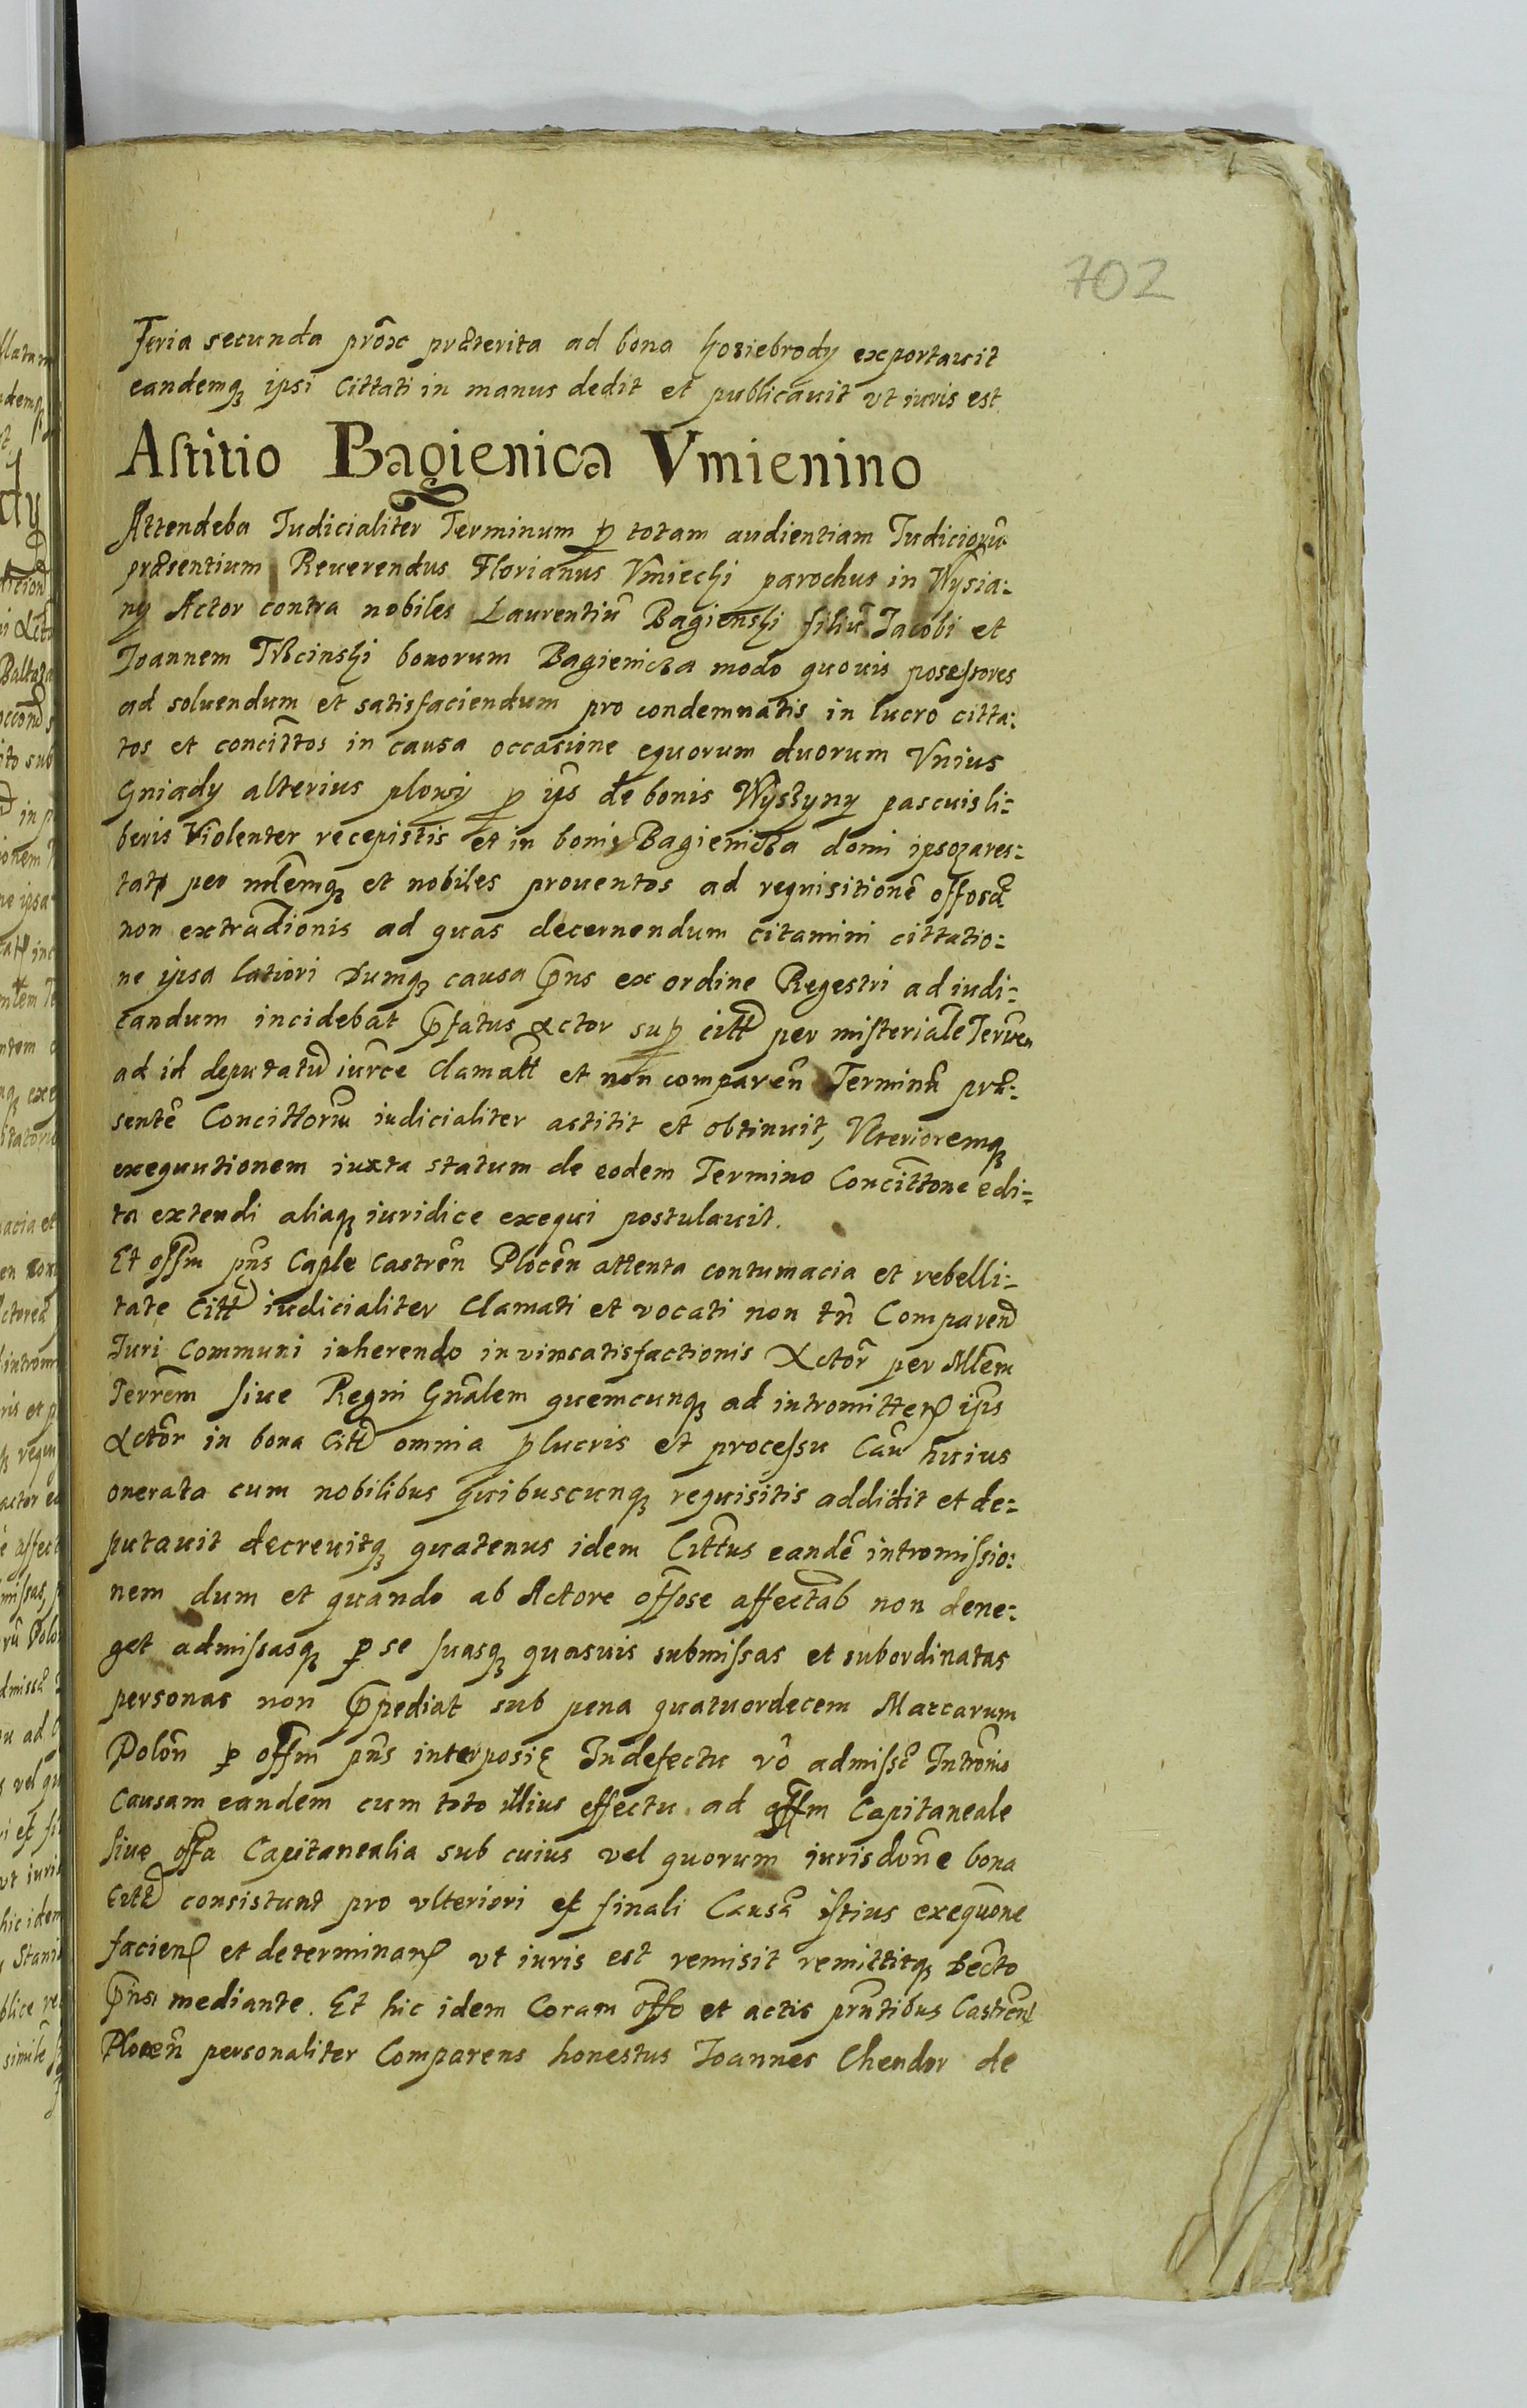 702
Feria secunda prox præterita ad bona Koziebrody exportauit
eandemq ipsi Cittati in manus dedit et publicauit vt iuris est
Astitio Bagienica Vmienino
Attendeba Judicialiter Terminum p totam audientiam Judiciorū
præsentium Reuerendus Florianus Vmiecki parochus in Wysia:
ny Actor contra nobiles Laurentiū Bagienski filiū Jacobi et
Joannem Trzcinski bonorum Bagienicza modo quouis posessores
ad soluendum et satisfaciendum pro condemnatis in lucro citta:
tos et concittos in causa occasione equorum duorum Vnius
Gniady alterius plowy p ijs de bonis Wyszyny pascuis li:
beris Violenter recepistis et in bonis Bagienicza domi ipsoꝝ ares:
tatꝭ per mlemq et nobiles prouentos ad requisitionē offosā
non extradionis ad quas decernendum citamini cittatio:
ne ipsa latiori Dumq causa pns ex ordine Regestri ad iudi:
candum incidebat pfatus Actor sup citt per misteriale Terrēn
ad id deputatū iurce Clamatt et non comparēn Terminū præ:
sentē Concittoriū iudicialiter astitit et obtinuit, Vlterioremq
exequutionem iuxta statum de eodem Termino Concittone edi:
ta extendi aliaq iuridice exequi postulauit.
Et offm pns Caple Castren Plocen attenta contumacia et rebelli:
tate Citt iudicialiter Clamati et vocati non tn Comparen
Juri Communi inherendo in vim satisfactionis Actor per Mlem
Terrem siue Regni Gnalem quemcunq ad intromitten ipīs
Actor in bona Citt omnia p lucris et processu Cau huius
onerata cum nobilibus quibuscunq requisitis addidit et de:
putauit decreuitq quatenus idem Cittus eandē intromissio:
nem dum et quando ab Actore offose affectab non dene:
get admissasq p se suasq quasuis submissas et subordinatas
personas non ppediat sub pena quatuordecem Marcarum
Polon p offm pns interposiꝭ In defectu vo admissæ Intromis
Causam eandem cum toto illius effectu ad offm Capitaneale
siue offa Capitanealia sub cuius vel quorum iurisdone bona
Citt consistunt pro vlteriori et finali Causā istius exequone
facien et determinan vt iuris est remisit remittitq Decto
pnsi mediante. Et hic idem Coram offo et actis pntibus Castren
Plocen personaliter Comparens honestus Joannes Chendor de